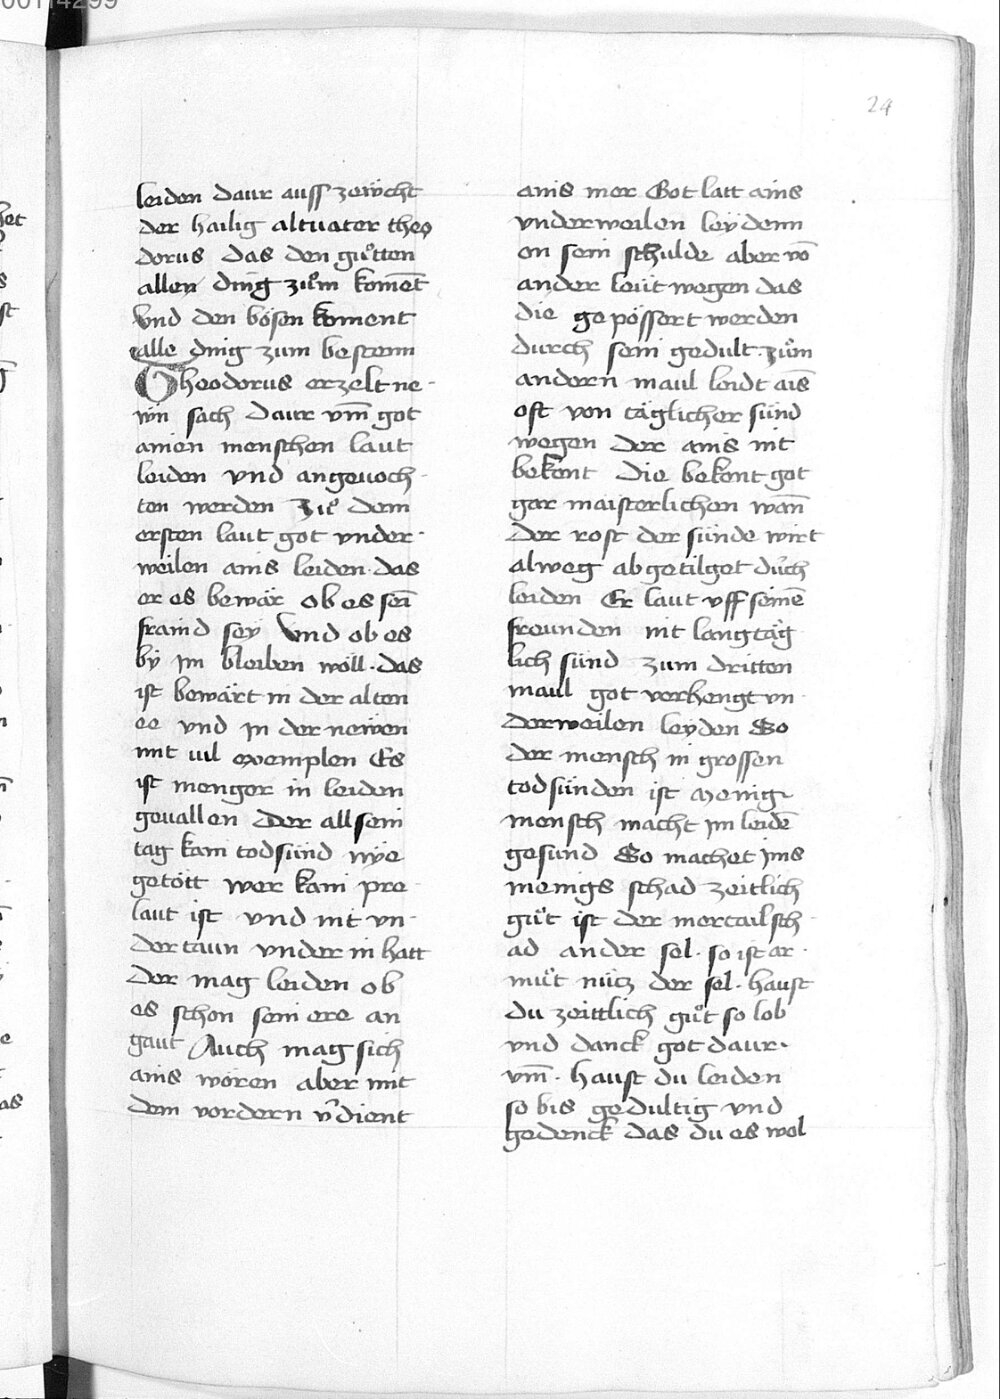 24
leiden daur auss zeẅcht
der hailig altuater theo
dorus das den gůtten
allen ding zům koment̄
vnd den bösen koment
alle ding zum bestenn
Theodorus erzelt ne-
wn sach daur vm̄ got
ainen menschen laut
leiden vnd angeuoch-
ten werden Zů dem
ersten laut got vnder-
weilen ains leiden das
er es bewär ob es sein
fraind sey Vnd ob es
by im bleiben wöll. das
ist bewärt in der alten
ee vnd in der newen
mit uil exemplen Es
ist menger in leiden
geuallen der all sein
tag kain todsünd nye
getött wer kain pre-
laut ist vnd nit vn-
dertaun vnder in hatt
der mag leiden ob
es schon sein ere an
gaut Auch mag sich
ains weren aber mit
dem vordern v̄dient
ains mer Got latt ains
vnderweilen leydenn
on sein schulde aber vō
ander leüt wegen das
die gepössert werden
durch sein gedult. zům
andern maul leidt ais̄
oft von täglicher sünd
wegen der ains nit
bekent die bekent got
gar maisterlichen wan̄
der rost der sünde wirt
alweg abgetilget důch
leiden Er laut vff seinē
freunden nit langtäg
lich sünd zum dritten
maul got verhengt vn-
derweilen leyden So
der mensch in grossen
todsünden ist Menig
mensch macht im leidē
gesund So machet ims
menigs schad zeitlich
gůt ist der mercailsch-
ad ander sel. so ist ar-
műt nücz der sel. haust
du zeittlich gůt so lob
vnd danck got daur-
vm̄. haust du leiden
so bis gedultig vnd
gedenck das du es wol